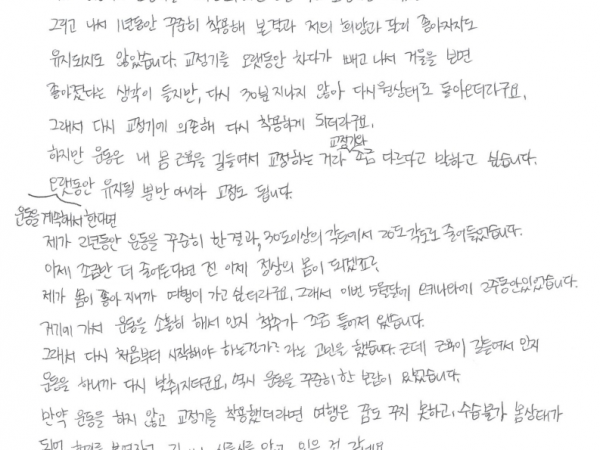 그리고 나서 1년동안 꾸준히 착용해 본결과 저의 희망과 달리 좋아지지도
유지되지도 않았습니다. 교정기를 오랫동안 차다가 빼고 나서 거울을 보면
좋아졌다는 생각이 들지만, 다시 30분 지나지 않아 다시 원상태로 돌아오더라구요.
그래서 다시 교정기에 의존해 다시 착용하게 되더라구요.
하지만 운동은 내 몸 근육을 길들여서 교정하는 거라 교정기와 조금 다르다고 말하고 싶습니다.
오랫동안 유지될 뿐만 아니라 교정도 됩니다.
운동을 계속해서 한다면
제가 2년동안 운동을 꾸준히 한 결과, 30도이상의 각도에서 20도 각도로 줄어들었습니다.
이제 조금만 더 줄어든다면 전 이제 정상의 몸이 되겠죠?
제가 몸이 좋아 지니까 여행이 가고 싶더라구요. 그래서 이번 5월달에 오키나와에 2주동안있었습니다.
거기에 가서 운동을 소홀히 해서 인지 척추가 조금 틀어져 왔습니다.
그래서 다시 처음부터 시작해야 하는건가? 라는 고민을 했습니다. 근데 근육이 길들여서 인지
운동을 하니까 다시 맞춰지더군요. 역시 운동을 꾸준히한 보람이 있었습니다.
만약 운동을 하지 않고 교정기를 착용했더라면 여행은 꿈도 꾸지 못하고, 수습불가 몸상태가